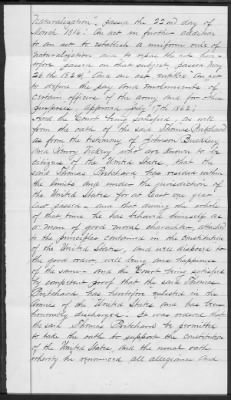 Naturalization", passed the 22nd day of
March 1816. An act in further addition
to an act to establish a uniform rule of
naturalization and to repeal the acts here-
tofore passed on that subject, passed May
26th 1824, And an act entitled "An act
to define the pay and emoluments of
certain officers of the army and for other
purposes" approved July 17th 1862;
And the Court being satisfied, as well
from the oath of the said Thomas Pritchard
as from the testimony of
and Henry who are shown to be
citizens of the United States, that the
said Thomas Pritchard has resided within
the limits and under the jurisdiction of
the United States for at least one year
last passed, and that during the whole
of that time he has behaved himself as
a man of good moral character, attached
to the principles contained in the Constitution
of the United States, and well disposed to
the good order, well being and happiness
of the same. And the Court being satisfied
by competent proof that the said Thomas
Pritchard has heretofore enlisted in the
of the United States and has been
honorably discharged. It was ordered that
the said Thomas Pritchard be permitted
to take the oath to support the constitution
of the United States, and the usual oath
whereby he renounced all allegiance and